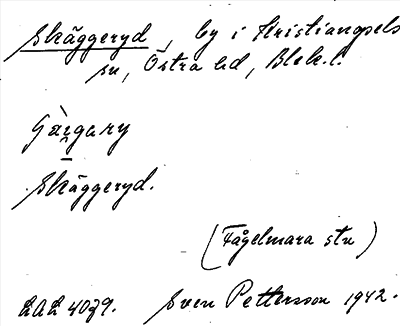 Skäggeryd, by i Kristianopels
sn, Östra hd, Blek. l.
Skäggeryd.
(Fågelmara stn)
LAL 4039. Sven Pettersson 1942.